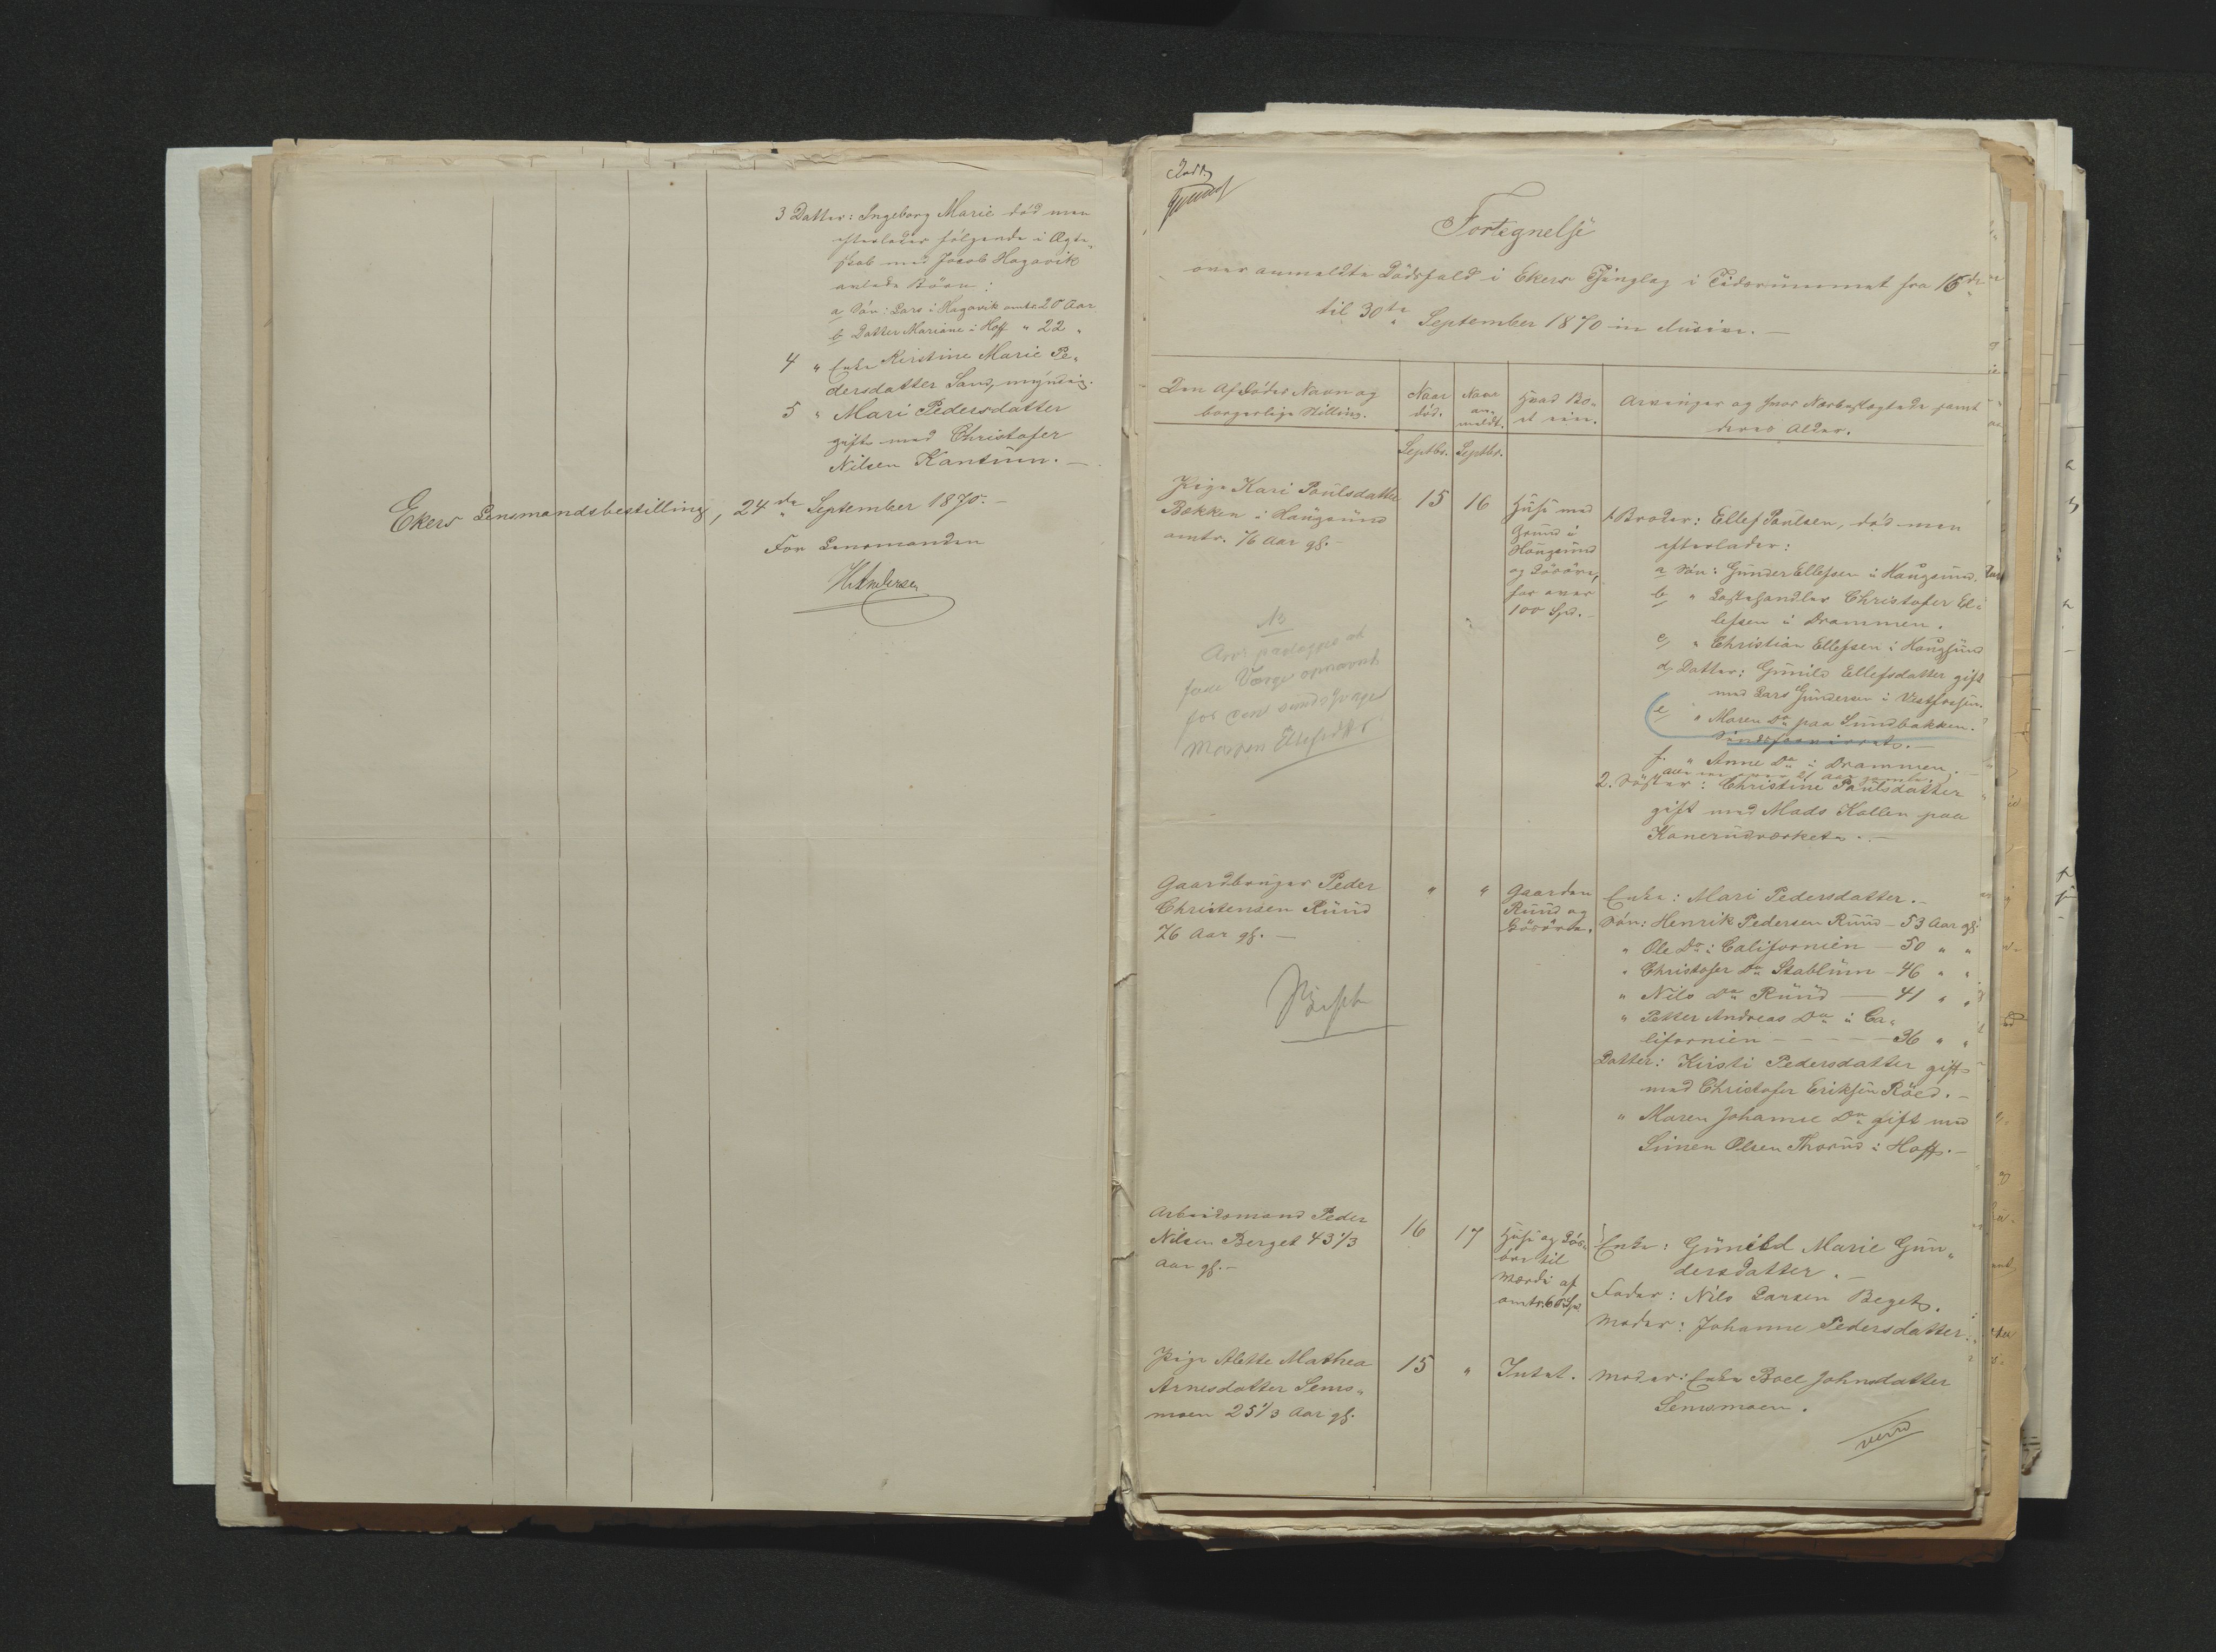 3 Datter: Ingeborg Marie død men
efterlader følgende i Ægte„
skab med Jacob Hagavik
avlede Børn:
a Søn: Lars i Hagavik omtr. 25 Aar
b Datter Mariane i Hoff " 22 "
4 " Enke Kirstine Marie Pe„
dersdatter Sand, myndig.
5 " Mari Pedersdatter
gift med Christofer
Nilsen Kantum. —
Ekers Lensmandsbestilling, 24de September 1870. —
For Lensmanden
H Andersen
Fortegnelse
over anmeldte Dødsfald i Ekers Thinglag i Tidsrummet fra 16de
til 30te September 1870 inclusive. —
Den Afdødes Navn og
borgerlige Stilling.
Naar
død.
Naar
an„
meldt.
Hvad Bo„
et eier.
Arvinger og hvor Nærbeslægtede samt
deres Alder.
Septbr. Septbr.
Pige Kari Paulsdatter
Bakken i Haugsund
omtr. 76 Aar gl. —
15
16
Huse med
Grund i
Haugsund
og Løsøre,
for over
100 Spd. —
1. Broder: Ellef Paulsen, død men
efterlader:
a Søn: Gunder Ellefsen i Haugsund.
b " Lasthandler Christofer El„
lefsen i Drammen.
c " Christian Ellefsen i Haugsund
d Datter: Gunild Ellefsdatter gift
med Lars Gundersen i Vestfossen.
e " Maren Do paa Sundbakken.
Sindsforvirret. —
f. " Anne Do i Drammen. —
alle ere over 21 Aar gamle.
2. Søster: Christine Paulsdatter
gift med Mads Kollen paa
Kanerudværket. —
NB
Arv paalægges at
faae Værge opnævnt
for den sindssvage
Maren Ellefsdtr
Gaardbruger Peder
Christensen Ruud
76 Aar gl. —
" "
Gaarden
Ruud og
Løsøre.
Enke: Mari Pedersdatter. —
Søn: Henrik Pedersen Ruud — 53 Aar gl.
" Ole Do i Californien — 50 " "
" Christofer Do Stablum — 46 " "
" Nils Do Ruud — 41 " "
" Petter Andreas Do i Ca„
lifornien — — — — — 36 " "
Datter: Kirsti Pedersdatter gift
med Christofer Eriksen Røed. —
" Maren Johanne Do gift med
Simen Olsen Thorud i Hoff. —
Arbeidsmand Peder
Nilsen Berget 43 1/3
Aar gl. —
16
17
Huse og Løs„
øre til
Værdi af
omtr. 60 Spd
Enke: Gunild Marie Gun„
dersdatter. —
Fader: Nils Larsen Beget.
Moder: Johanne Pedersdatter.
Pige Alette Mathea
Arnesdatter Sems„
moen 25 1/3 Aar gl.
15
"
Intet.
Moder: Enke Boel Johnsdatter
Semsmoen.